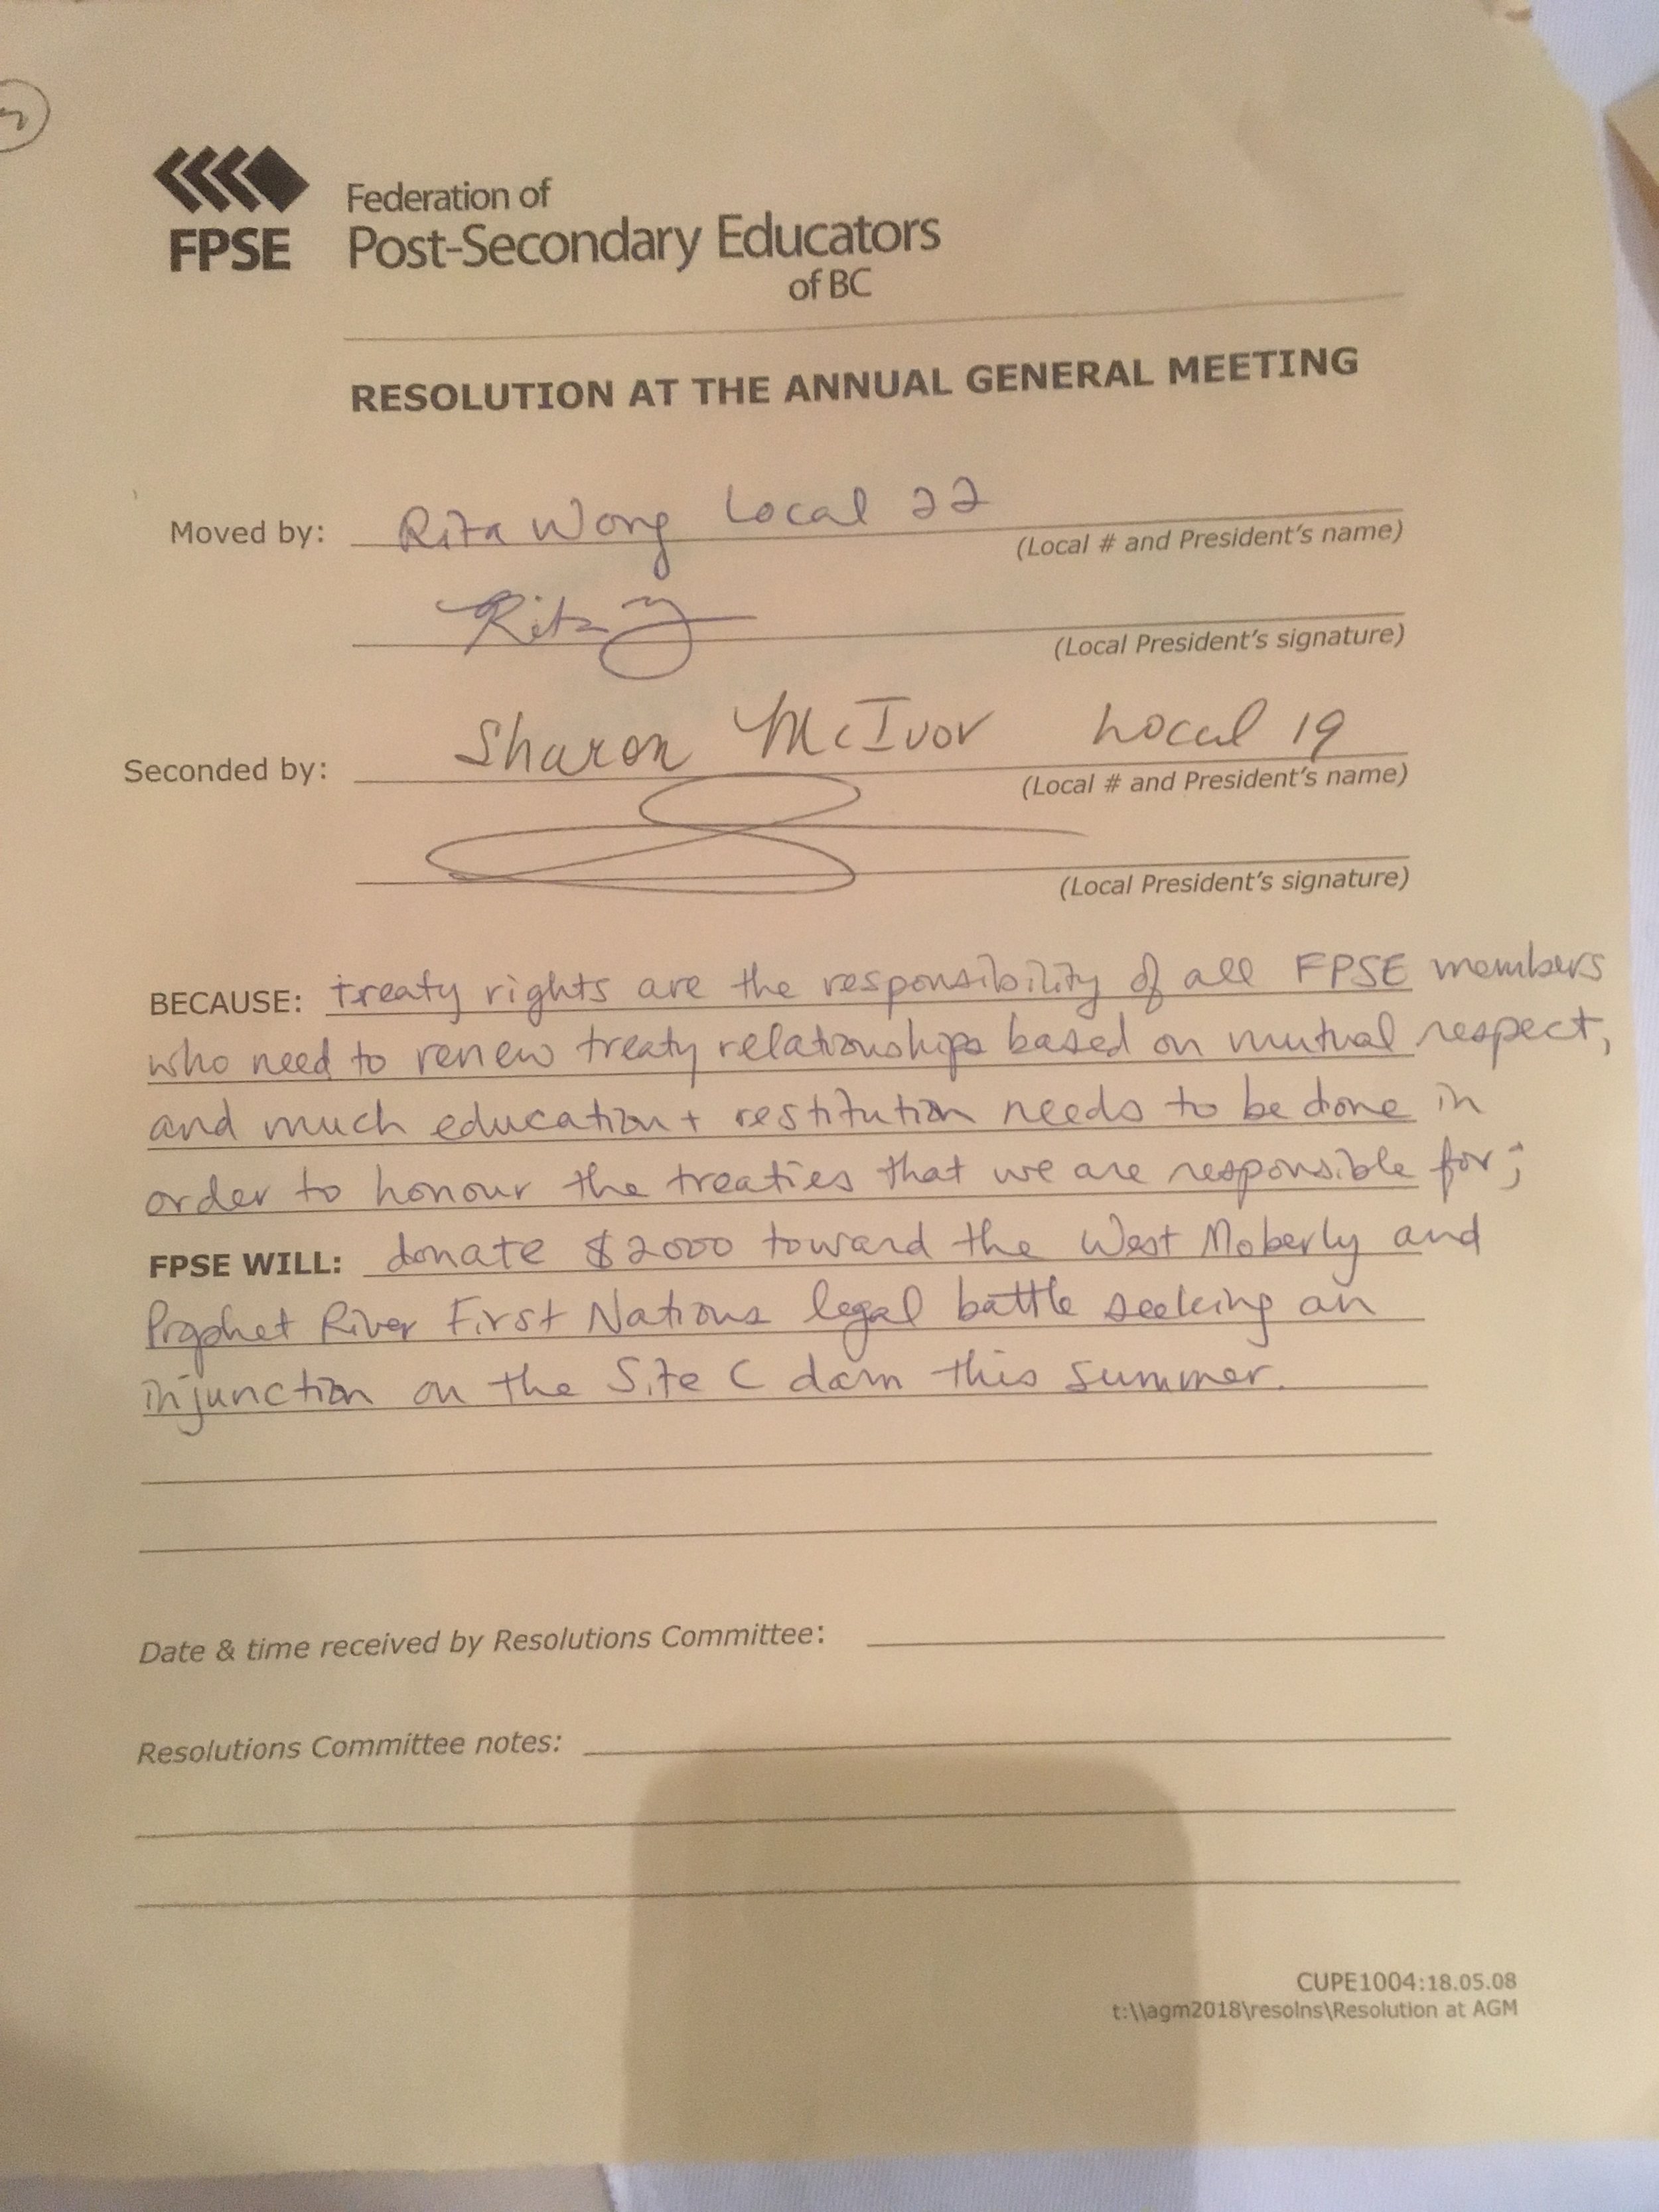 FPSE
Federation of
Post-Secondary Educators
of BC
RESOLUTION AT THE ANNUAL GENERAL MEETING
Moved by: Rita Wong Local 22
(Local # and President's name)
Rita
(Local President's signature)
Seconded by: Sharon McIvor Local 19
(Local # and President's name)
(Local President's signature)
BECAUSE: treaty rights are the responsibility of all FPSE members
who need to renew treaty relationships based on mutual respect,
and much education + restitution needs to be done in
order to honour the treaties that we are responsible for;
FPSE WILL: donate $2000 toward the West Moberly and
Prophet River First Nations legal battle seeking an
injunction on the Site C dam this summer.
Date & time received by Resolutions Committee:
Resolutions Committee notes:
CUPE1004:18.05.08
t:\\agm2018\resolns\Resolution at AGM